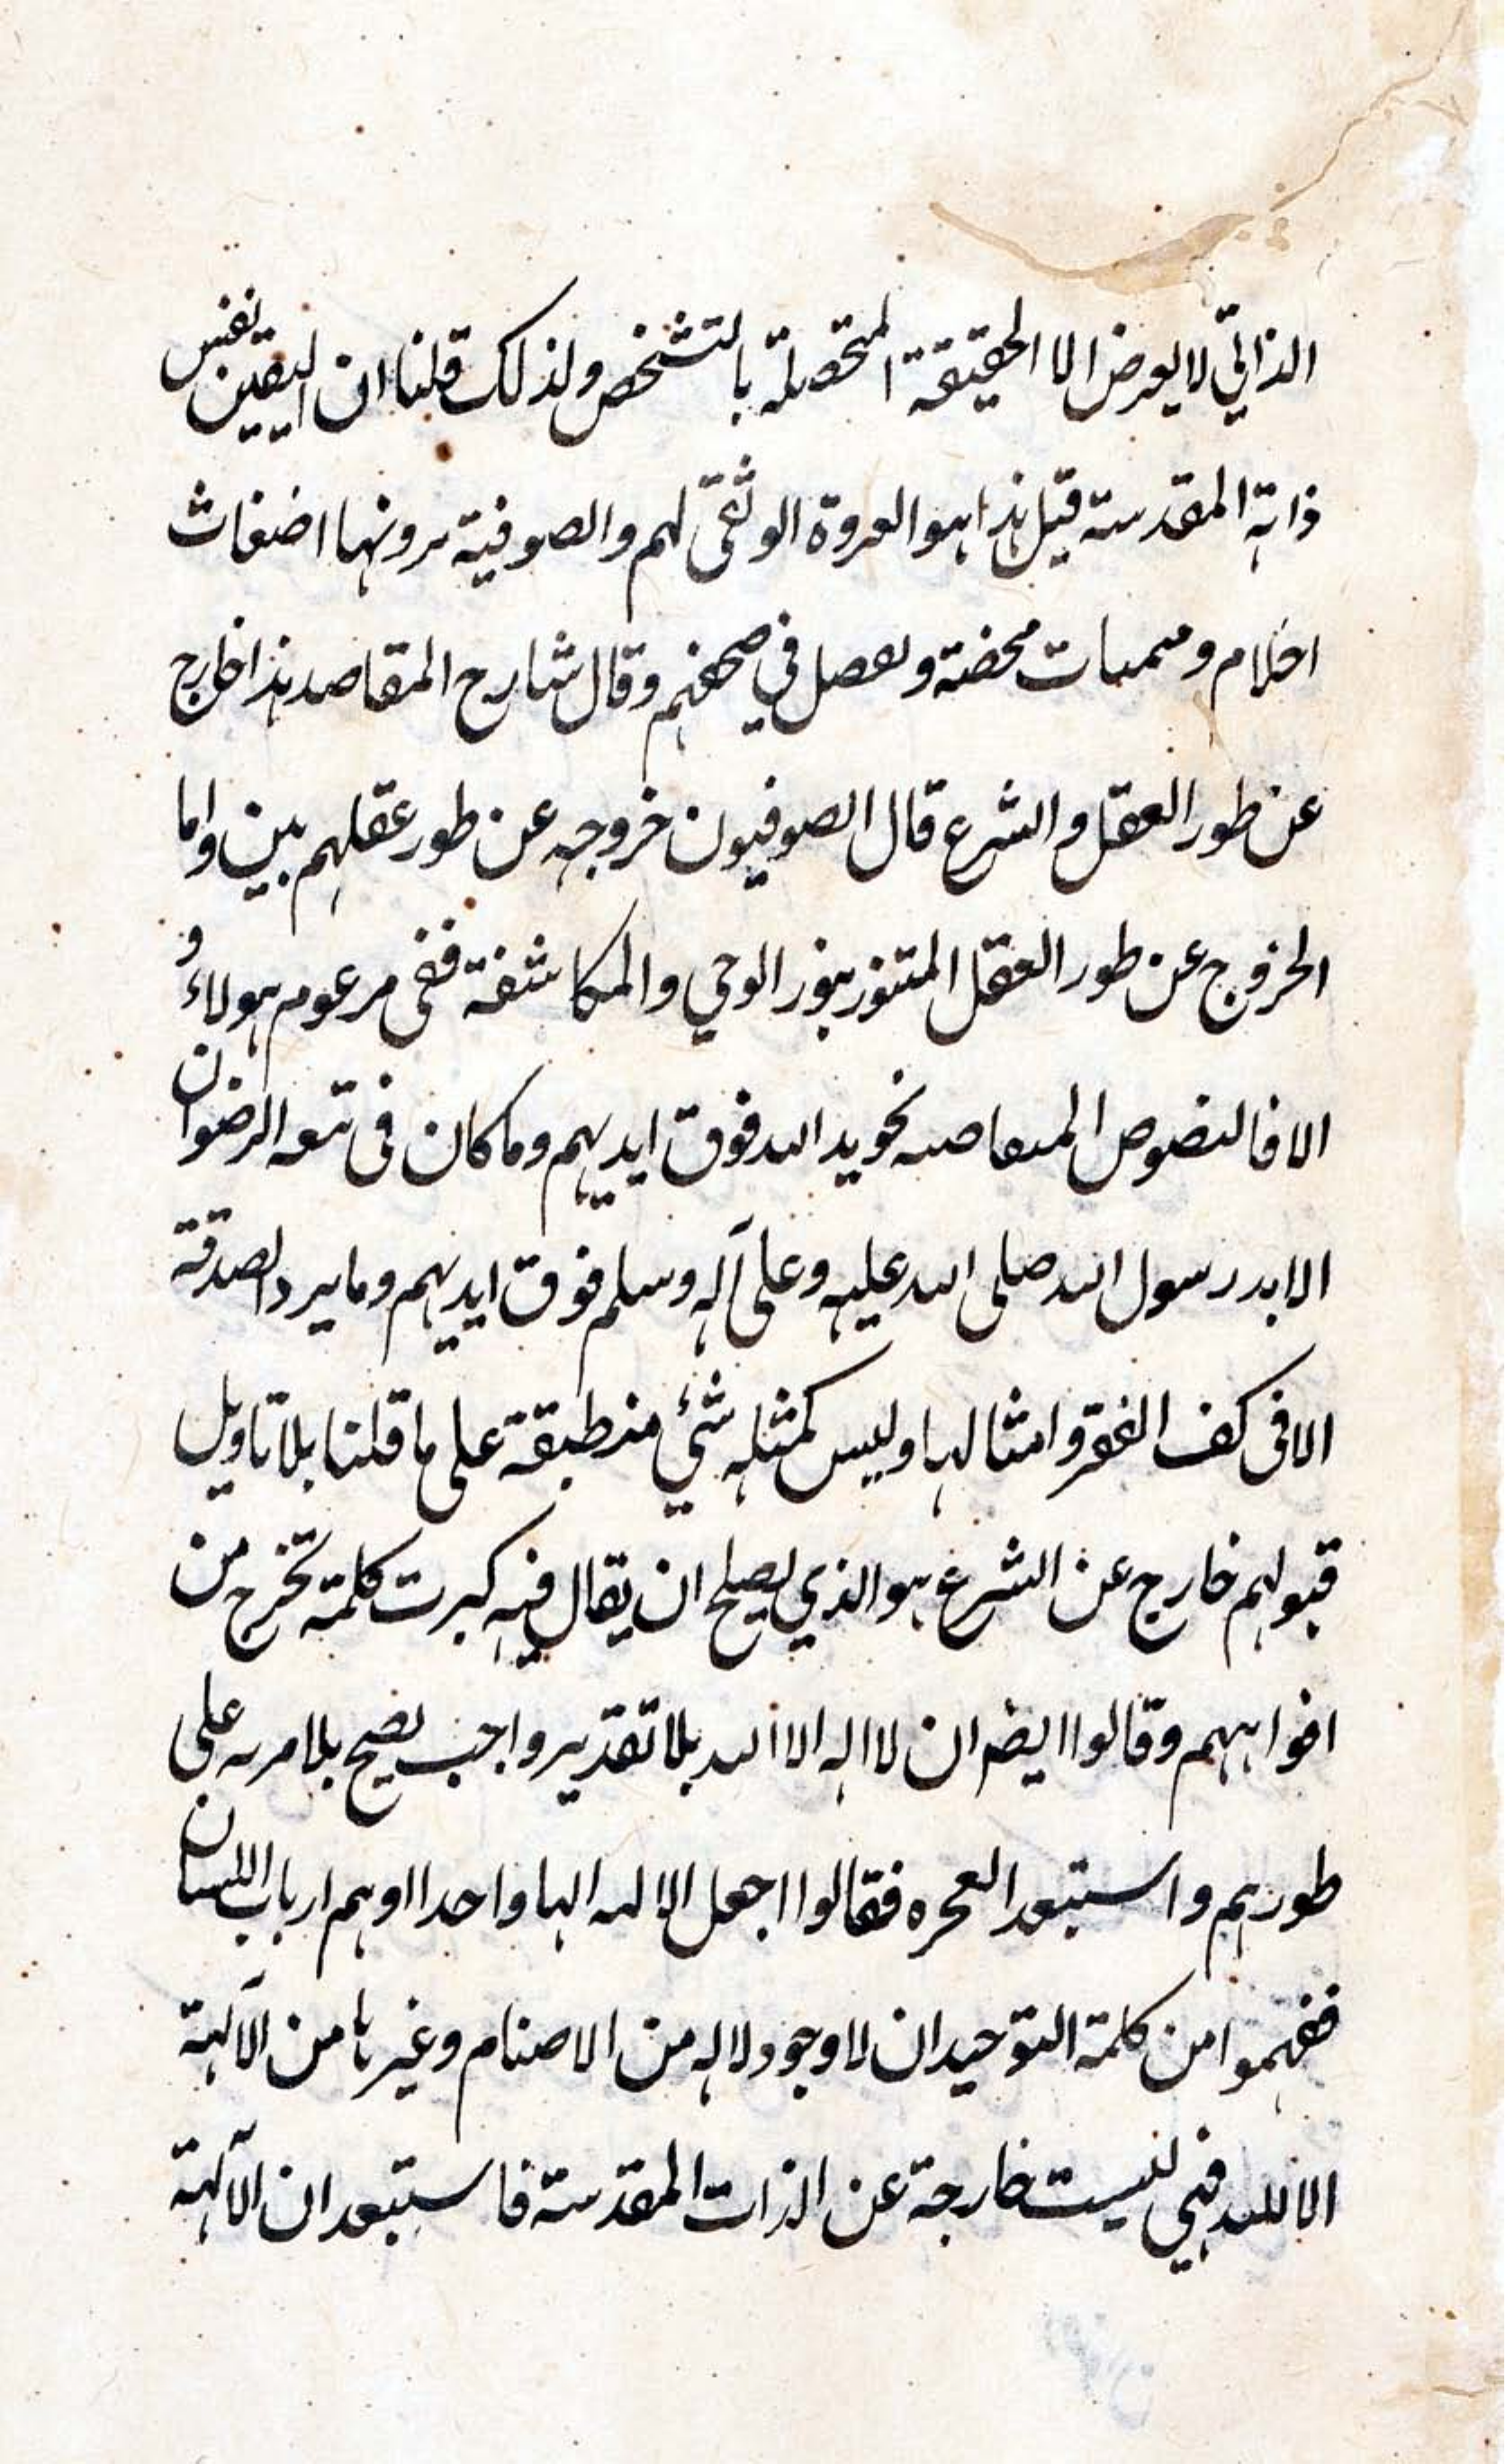 الذاتي لا يعرض الا الحقيقة المتحصلة بالتشخص ولذلك قلنا ان اليقين نفس
ذاته المقدسة قيل هذا هو العروة الوثقى لهم والصوفية يرونها اضغاث
احلام و محضة و في صحفهم وقال شارح المقاصد هذا خارج
عن طور العقل والشرع قال الصوفيون خروجه عن طور عقلهم بين واما
الخروج عن طور العقل المتنور بنور الوحي والمكاشفة ففي مزعوم هولاء و
الا فالنصوص نحو يد الله فوق ايديهم وما كان في الرضوان
الا يد رسول الله صلى الله عليه وعلى آله وسلم فوق ايديهم وما يرد الصدقة
الا في كف الفقر وامثالها وليس كمثله شيء منطبقة على ما قلنا بلا تاويل
قبولهم خارج عن الشرع هو الذي يصلح ان يقال فيه كبرت كلمة تخرج من
افواههم وقالوا ايضا ان لا اله الا الله بلا تقدير واجب يصح بلا مريه على
طورهم واستبعد فقالوا اجعل الالهه الها واحدا اوهم ارباب اللسان
ففهموا من كلمة التوحيد ان لا وجود لاله من الاصنام وغيرها من الآلهة
الا لله فهي ليست خارجة عن الذات المقدسة فاستبعد ان الآلهة